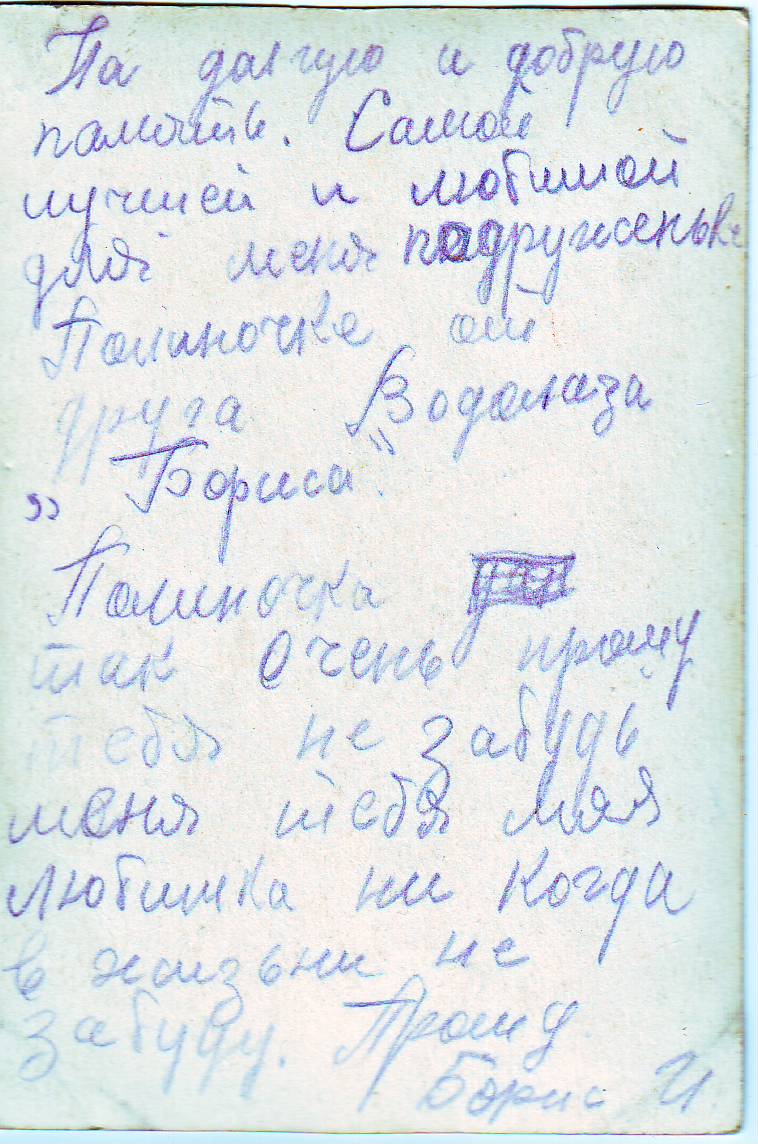 На долгую и добрую
памоить. Самой
лучшей и любимой
для меня подруженьке
Полиночке от
друга Водолаза
„ Бориса".
Полиночка
так очень прошу
тебя не забудь
меня тебя мая
любимка ни когда
в жизьни не
забуду. Прошу
Борис И.